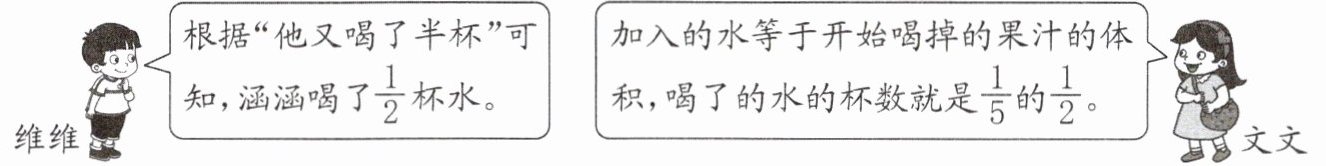 根据“他又喝了半杯”可
知，涵涵喝了$\frac{1}{2}$杯水。
维维
加入的水等于开始喝掉的果汁的体
积，喝了的水的杯数就是$\frac{1}{5}$的$\frac{1}{2}$。
文文